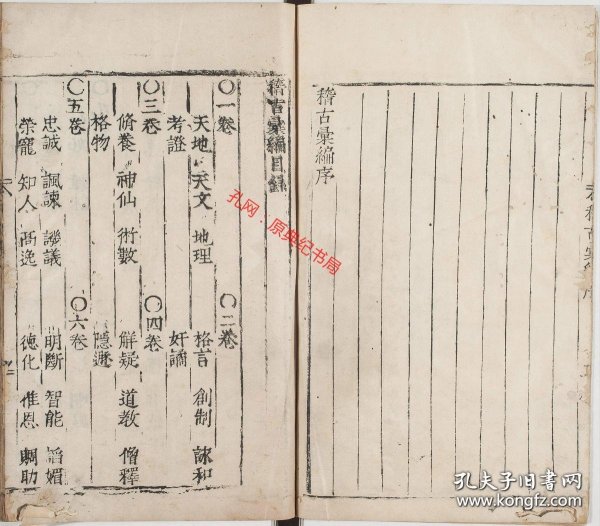 稽古彙編序
稽古彙編目錄
〇一卷
〇二卷
天地 天文 地理
格言 創制 詠和
考證
奸譎
〇三卷
〇四卷
脩養 神仙 術數
解疑 道教 僧釋
格物
隱遯
〇五卷
〇六卷
忠誠 諷諫 讜議
明斷 智能 謟媚
榮寵 知人 高逸
德化 推恩 賙助
孔网·原典纪书局
孔夫子旧书网
www.kongfz.com